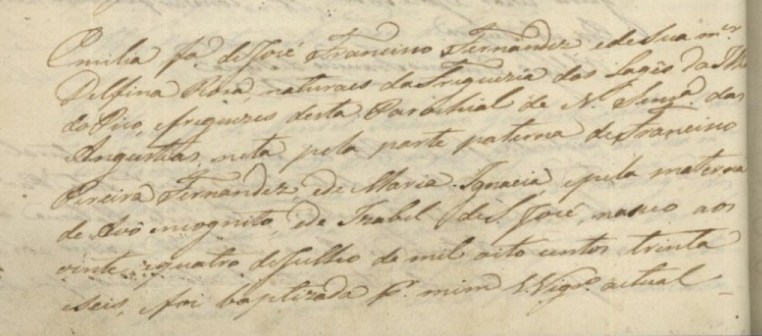 Emilia fa. de José Francisco Fernandez e de Sua mer
Delfina Rosa, naturaes da Freguezia das Lagẽs da Ilha
do Pico, e freguezes desta Parochial de N. Senra. das
Angustias, neta pela parte paterna de Francisco
Pereira Fernandez, e de Maria Ignacia e pela materna
de Avô incognito, e de Izabel de S. José, nasceo aos
vinte e quatro de Julho de mil oito centos trinta
e seis, e foi baptizada pr. mim Vigro. actual